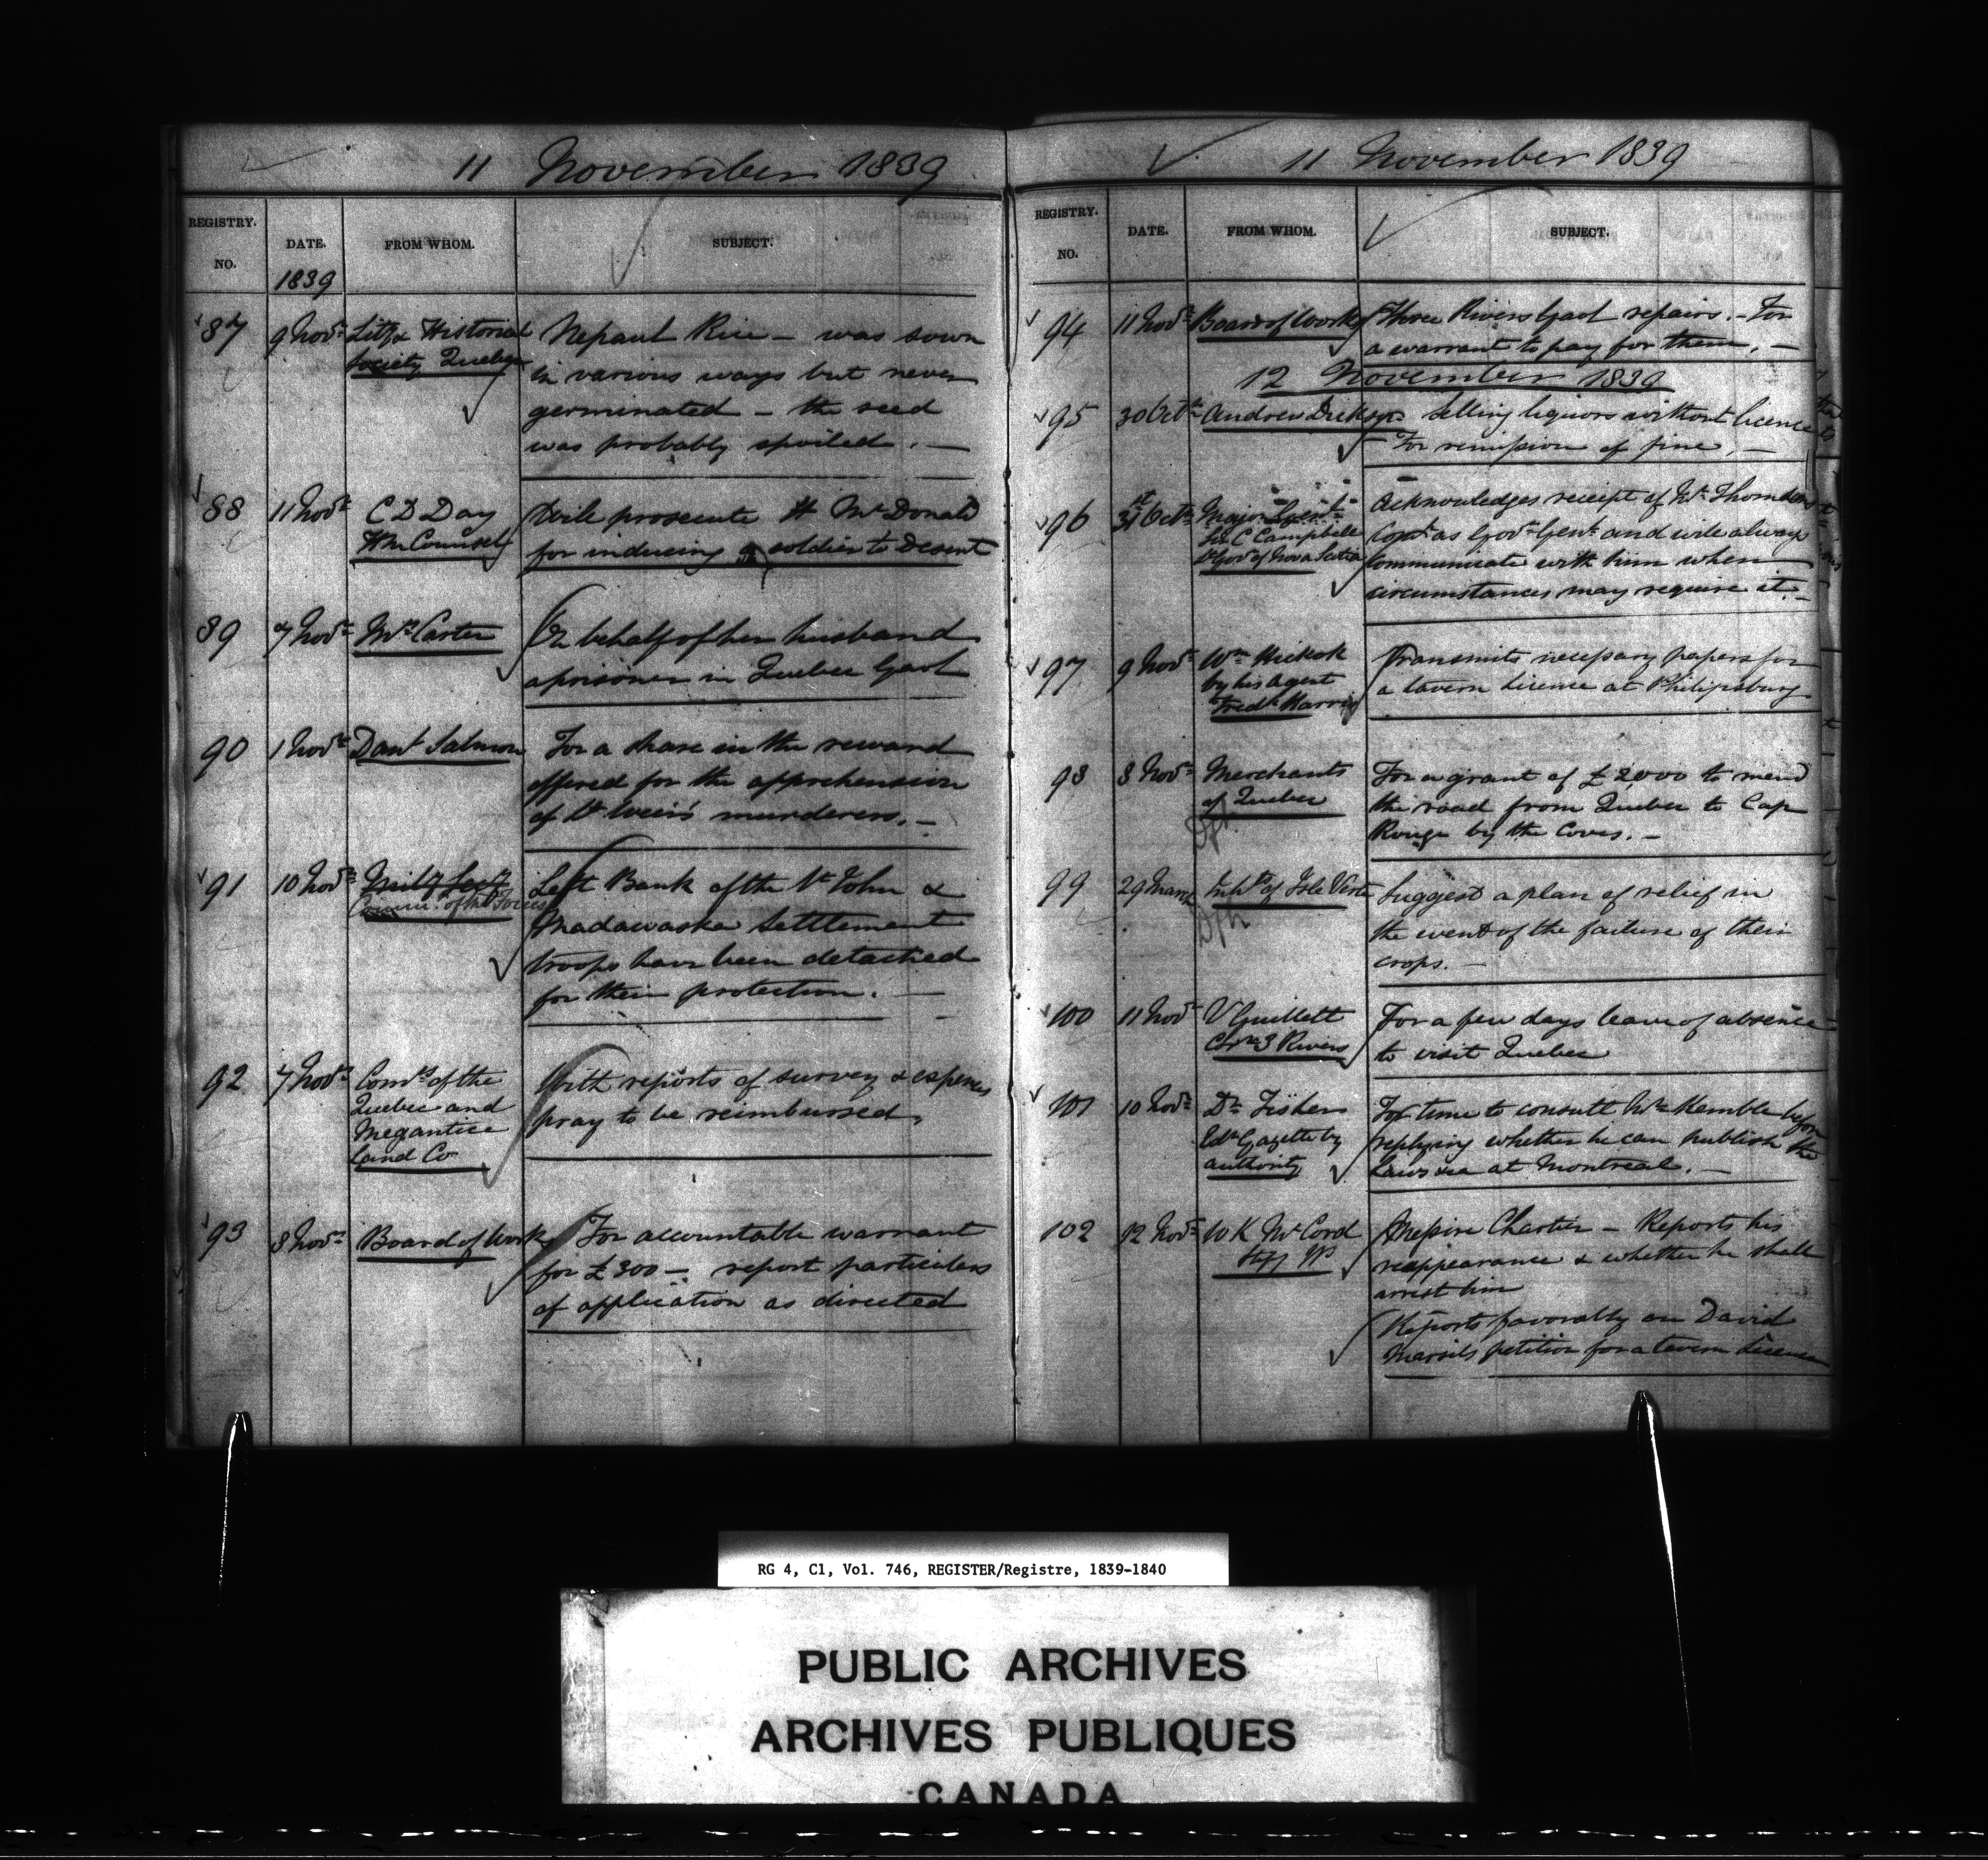 11 November 1839
REGISTRY.
NO.
DATE.
1839
FROM WHOM.
SUBJECT.
87
9 Novr
Lity & Historical
Society Quebec
Nepaul Rice - was sown
in various ways but never
germinated - the seed
was probably spoiled. -
88
11 Novr
C D Day
Hm Counsel
Will prosecute H McDonald
for inducing a soldier to Desert
89
7 Novr
Mrs Carter
On behalf of her husband
a prisoner in Quebec Gaol
90
1 Novr
Danl Salmon
For a share in the reward
offered for the apprehension
of Lt Weir's murderers. -
91
10 Novr
Mility Secy
Comm. of the Forces
Left Bank of the St John &
Madawaska Settlement
troops have been detached
for their protection. -
92
7 Novr
Comrs of the
Quebec and
Megantic
Land Co
With reports of survey & expenses
pray to be reimbursed.
93
8 Novr
Board of Works
For accountable warrant
for £300 - report particulars
of application as directed
11 November 1839
REGISTRY.
NO.
DATE.
FROM WHOM.
SUBJECT.
94
11 Novr
Board of Works
Three Rivers Gaol repairs. - For
a warrant to pay for them. -
12 November 1839
95
30 Octr
Andrew Dickson
Selling liquors without licence
For remission of fine. -
96
31st Octr
Major Genl
Sir C Campbell
Lt Govr of Nova Scotia
Acknowledges receipt of Mr Thomson's
Comn as Govr Genl and will always
communicate with him when
circumstances may require it. -
97
9 Novr
Wm Hickok
by his agent
Fredk Harris
Transmits necessary papers for
a tavern licence at Philipsburg
98
8 Novr
Merchants
of Quebec
For a grant of £2,000 to mend
the road from Quebec to Cap
Rouge by the Coves. -
99
29
Inhts of Isle Verte
Suggest a plan of relief in
the event of the failure of their
crops. -
100
11 Novr
V Guillett
3 Rivers
For a few days leave of absence
to visit Quebec
101
10 Novr
Dr Fisher
Edr Gazette by
authority
For time to consult Mr Kemble before
replying whether he can publish the
Laws &ca at Montreal. -
102
12 Novr
W K McCord
Messire Chartier - Reports his
reappearance & whether he shall
arrest him
Reports favorably on David
Marsil's petition for a tavern Licence
RG 4, C1, Vol. 746, REGISTER/Registre, 1839-1840
PUBLIC ARCHIVES
ARCHIVES PUBLIQUES
CANADA